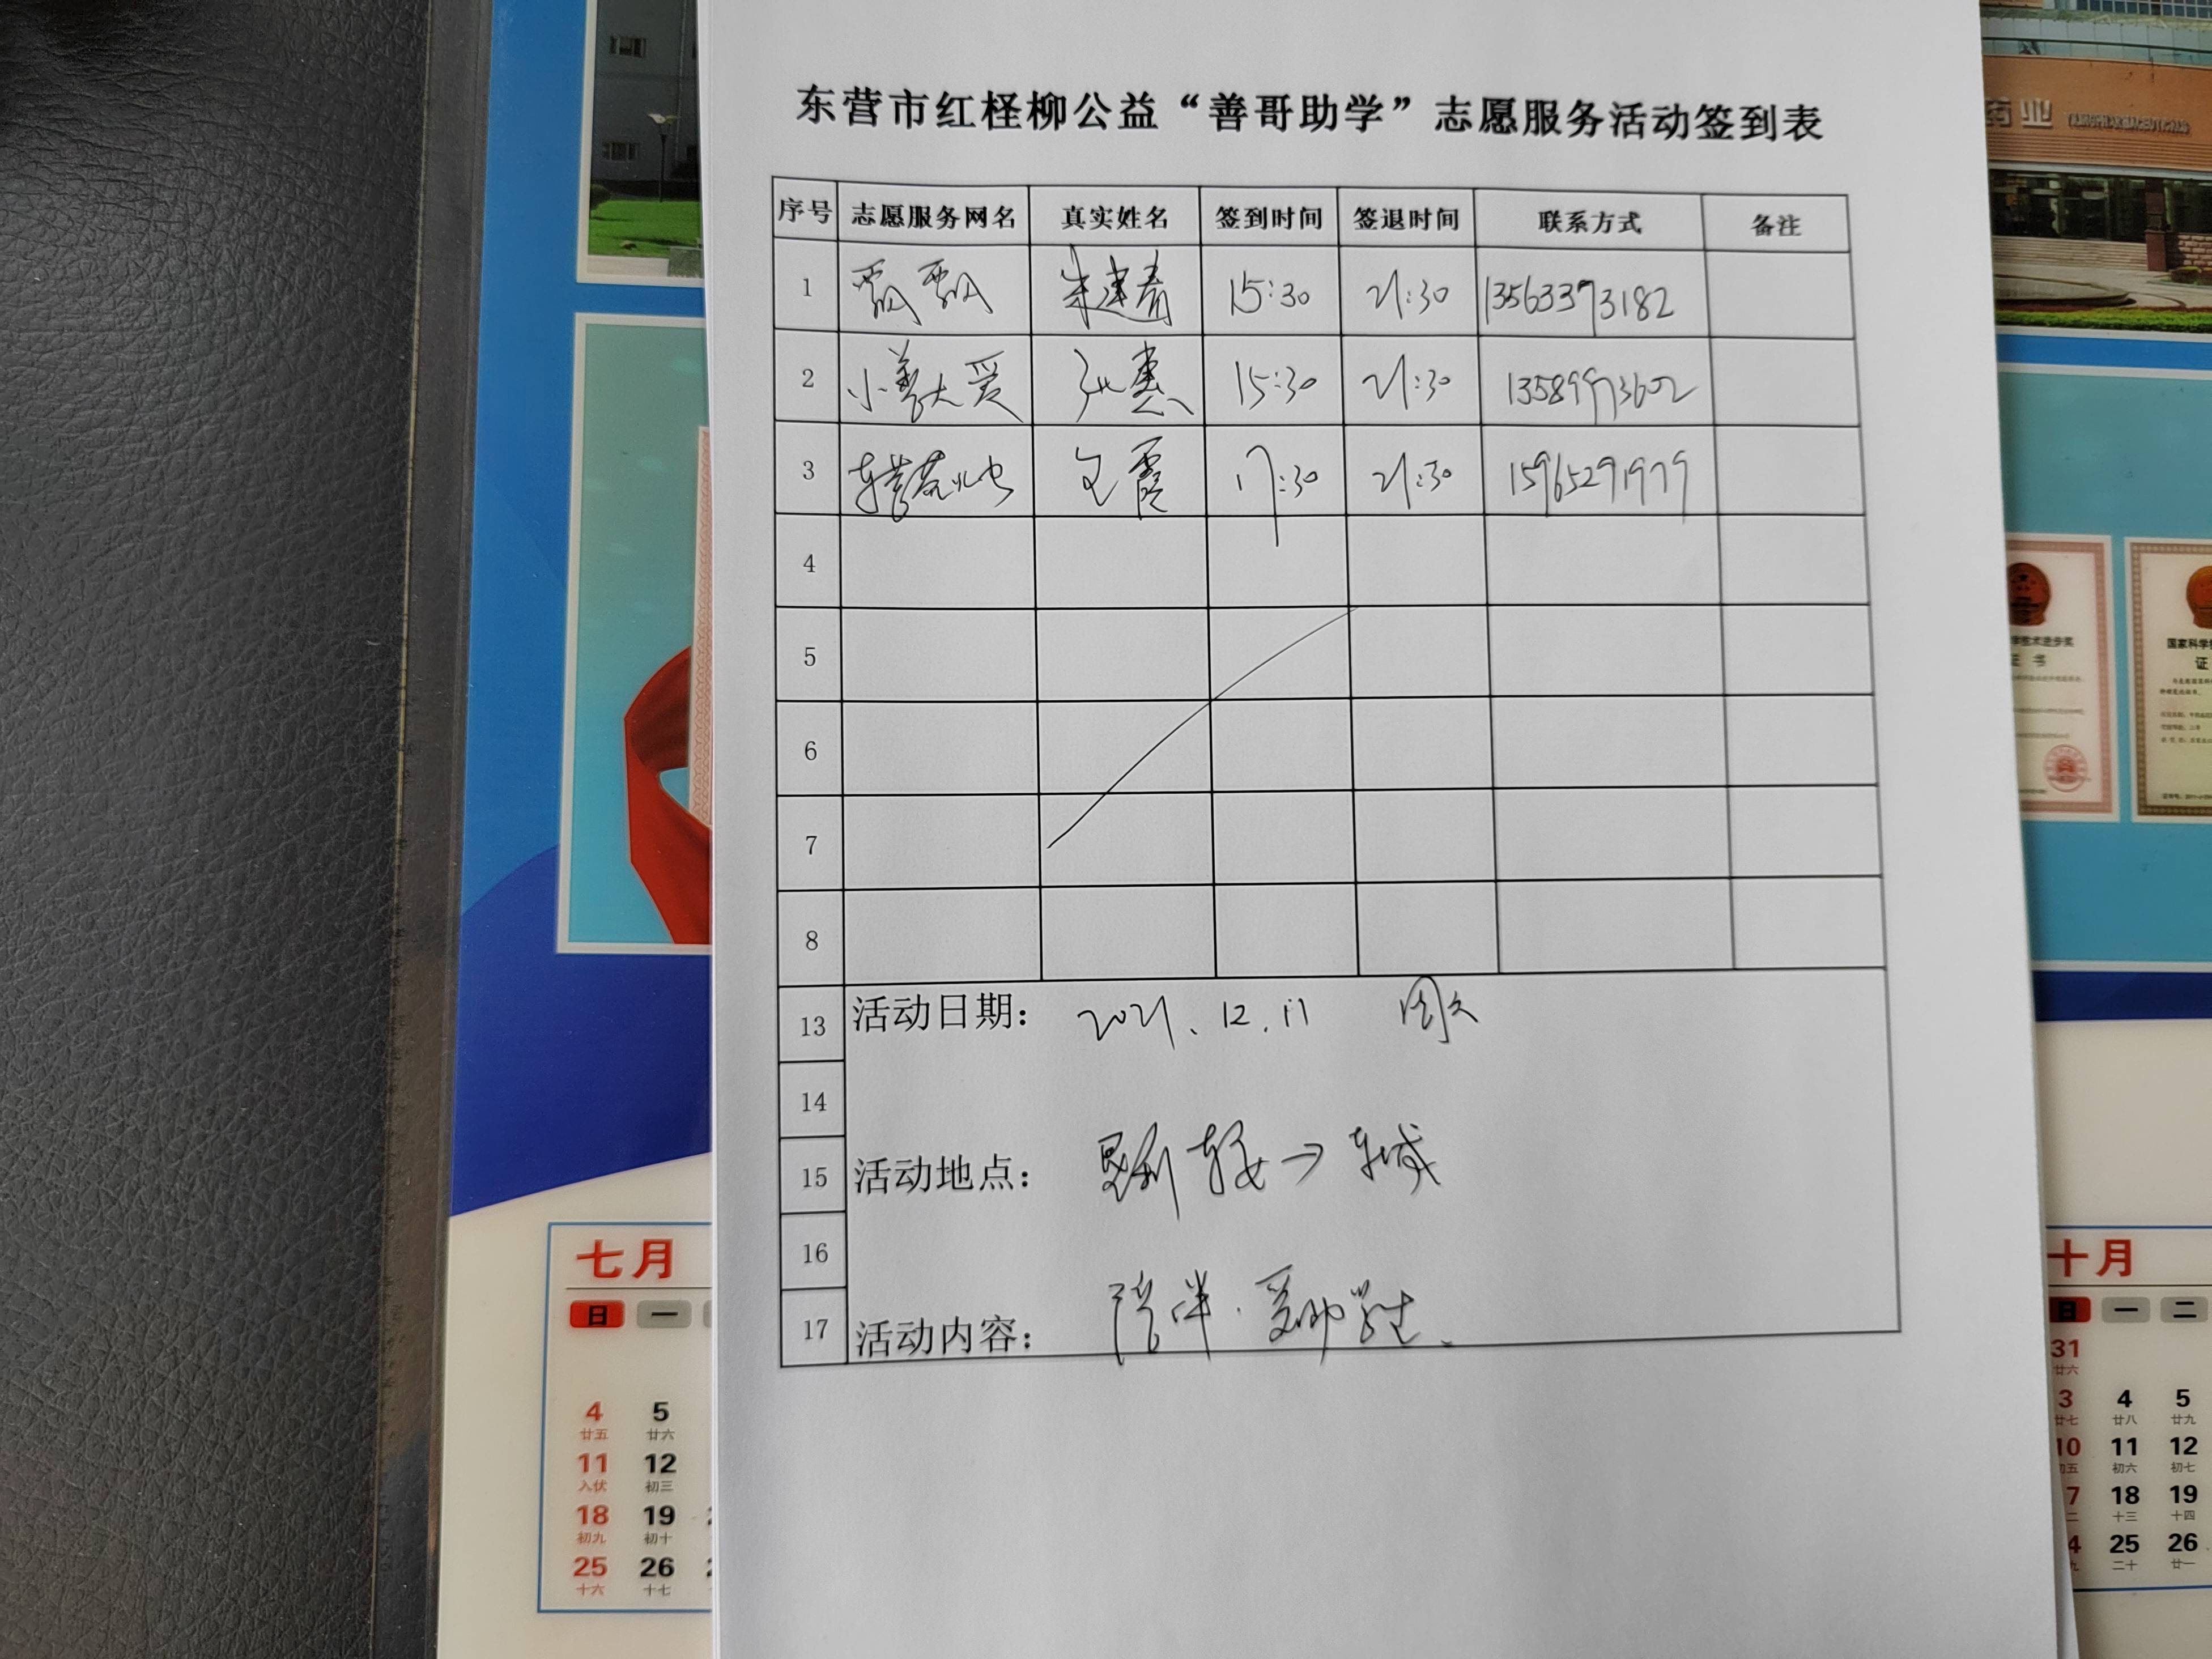 东营市红柽柳公益“善哥助学”志愿服务活动签到表
序号 志愿服务网名 真实姓名 签到时间 签退时间 联系方式 备注
1 飘飘 朱建春 15:30 21:30 13563393182
2 小善大爱 张惠 15:30 21:30 13589993602
3 15:30 21:30 15965291979
4
5
6
7
8
13 活动日期： 2021.12.11 周六
14
15 活动地点： 垦利 → 东城
16
17 活动内容： 陪伴.爱心助学.
药业
七月
日 一
4 5
廿五 廿六
11 12
入伏 初三
18 19
初九 初十
25 26
十六 十七
证书
国家科学
证
十月
日 一 二
31
廿六
3 4 5
廿七 廿八 廿九
10 11 12
初五 初六 初七
18 19
十三 十四
25 26
二十 廿一